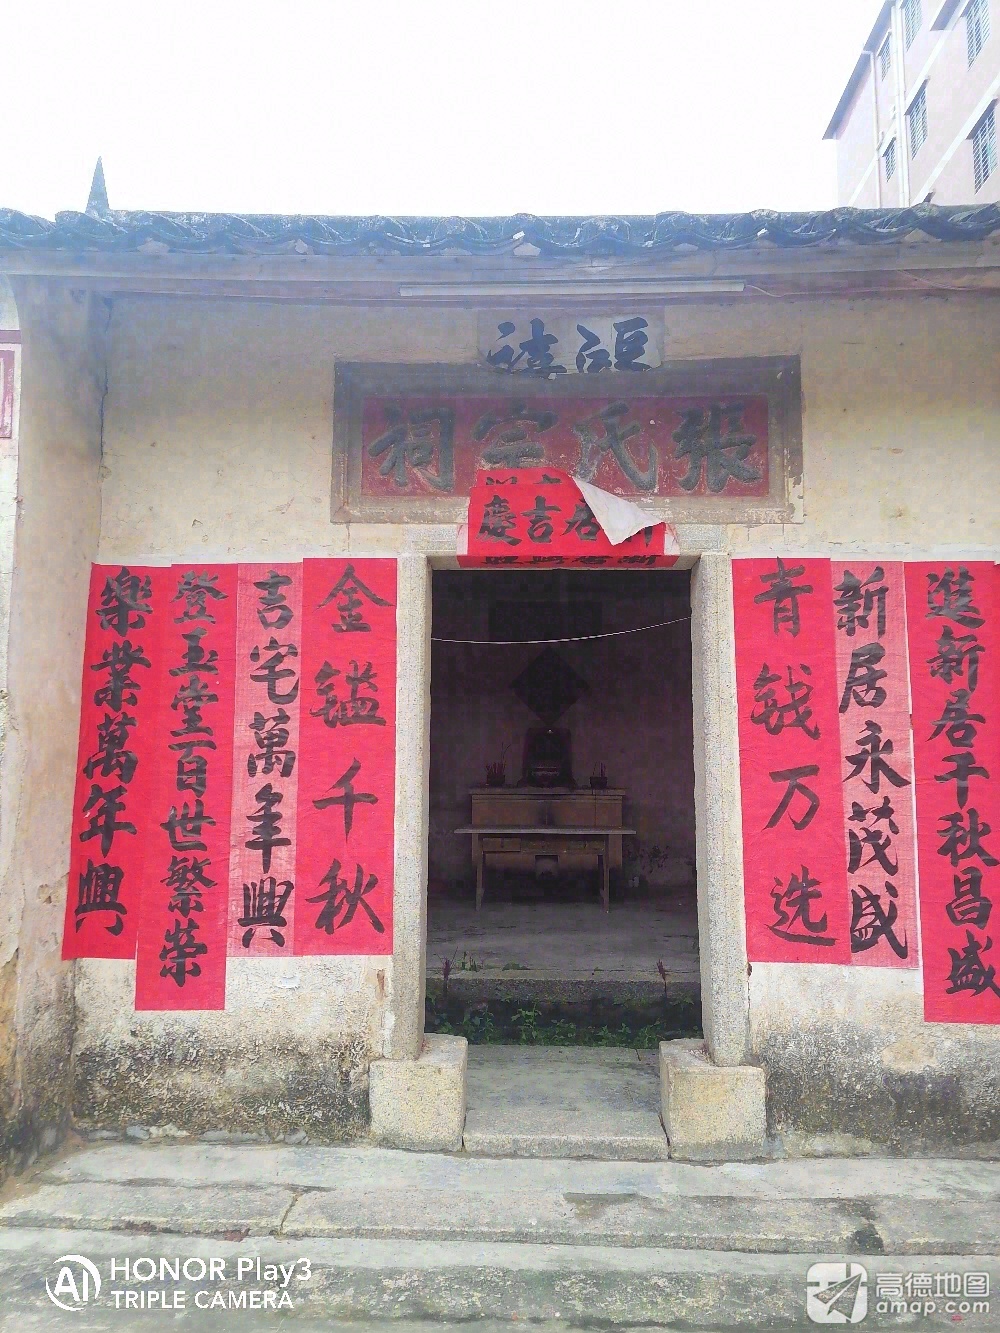 張氏宗祠
居吉慶
進新居千秋昌盛
新居永茂盛
青钱万选
金鎰千秋
吉宅萬年興
登玉堂百世繁荣
樂業萬年興
HONOR Play3
TRIPLE CAMERA
高德地图
amap.com